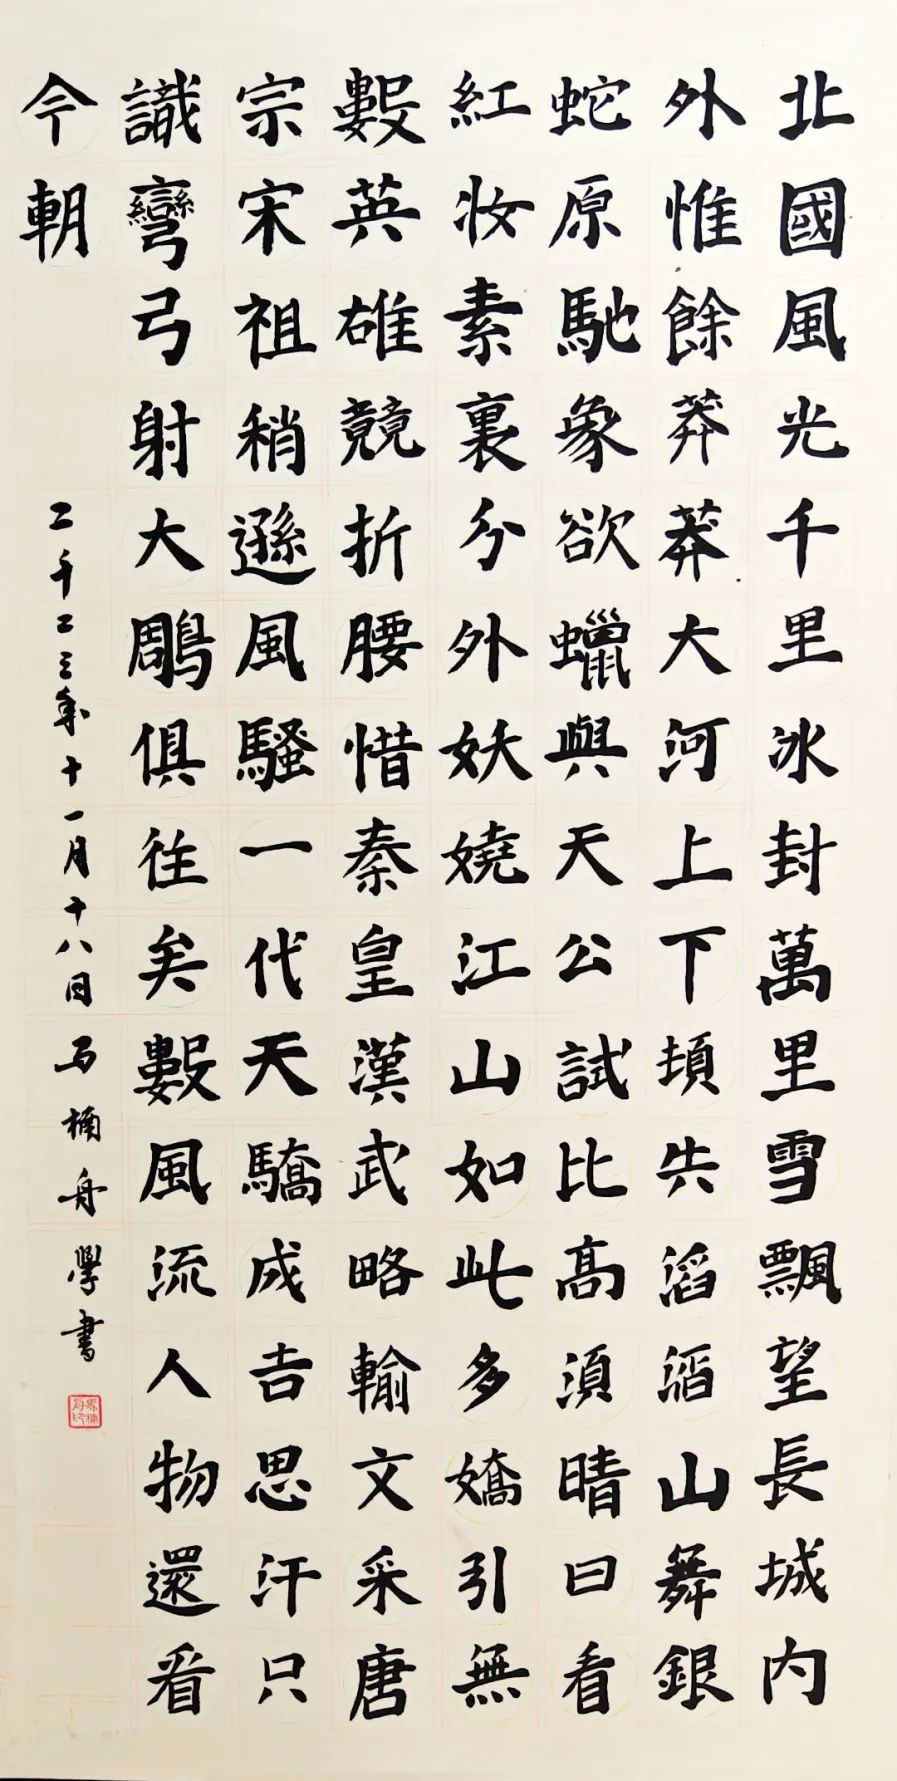 北國風光千里冰封萬里雪飄望長城内
外惟餘莽莽大河上下頓失滔滔山舞銀
蛇原馳象欲蠟與天公試比髙須晴日看
紅妆素裏分外妖嬈江山如此多嬌引無
數英雄競折腰惜秦皇漢武略輸文采唐
宗宋祖稍遜風騷一代天驕成吉思汗只
識彎弓射大鵰俱往矣數風流人物還看
今朝
二千二三年十一月十八日马楠舟學書